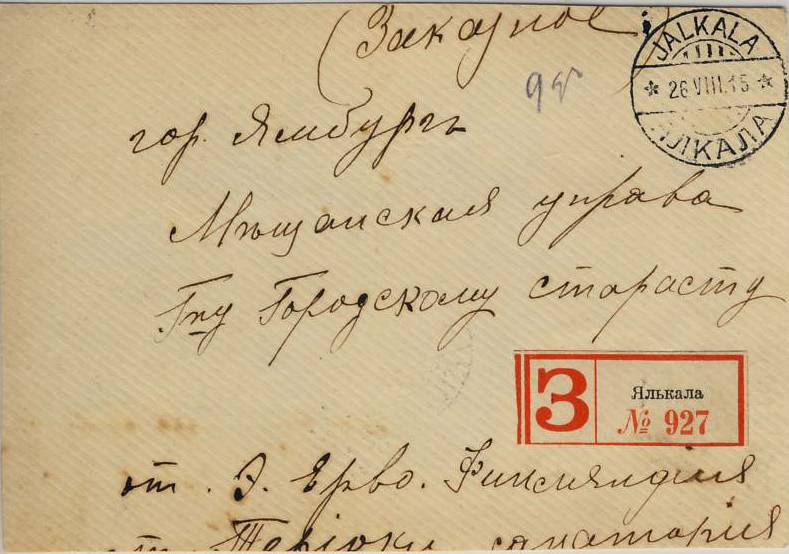 (Заказное)
JALKALA
26.VIII.15
ЯЛКАЛА
гор. Ямбургъ
Мѣщанская управа
Гну Городскому старасту
З
Ялькала
№ 927
от. Э. Ерво. Финляндiя
ст. Терiоки санатория